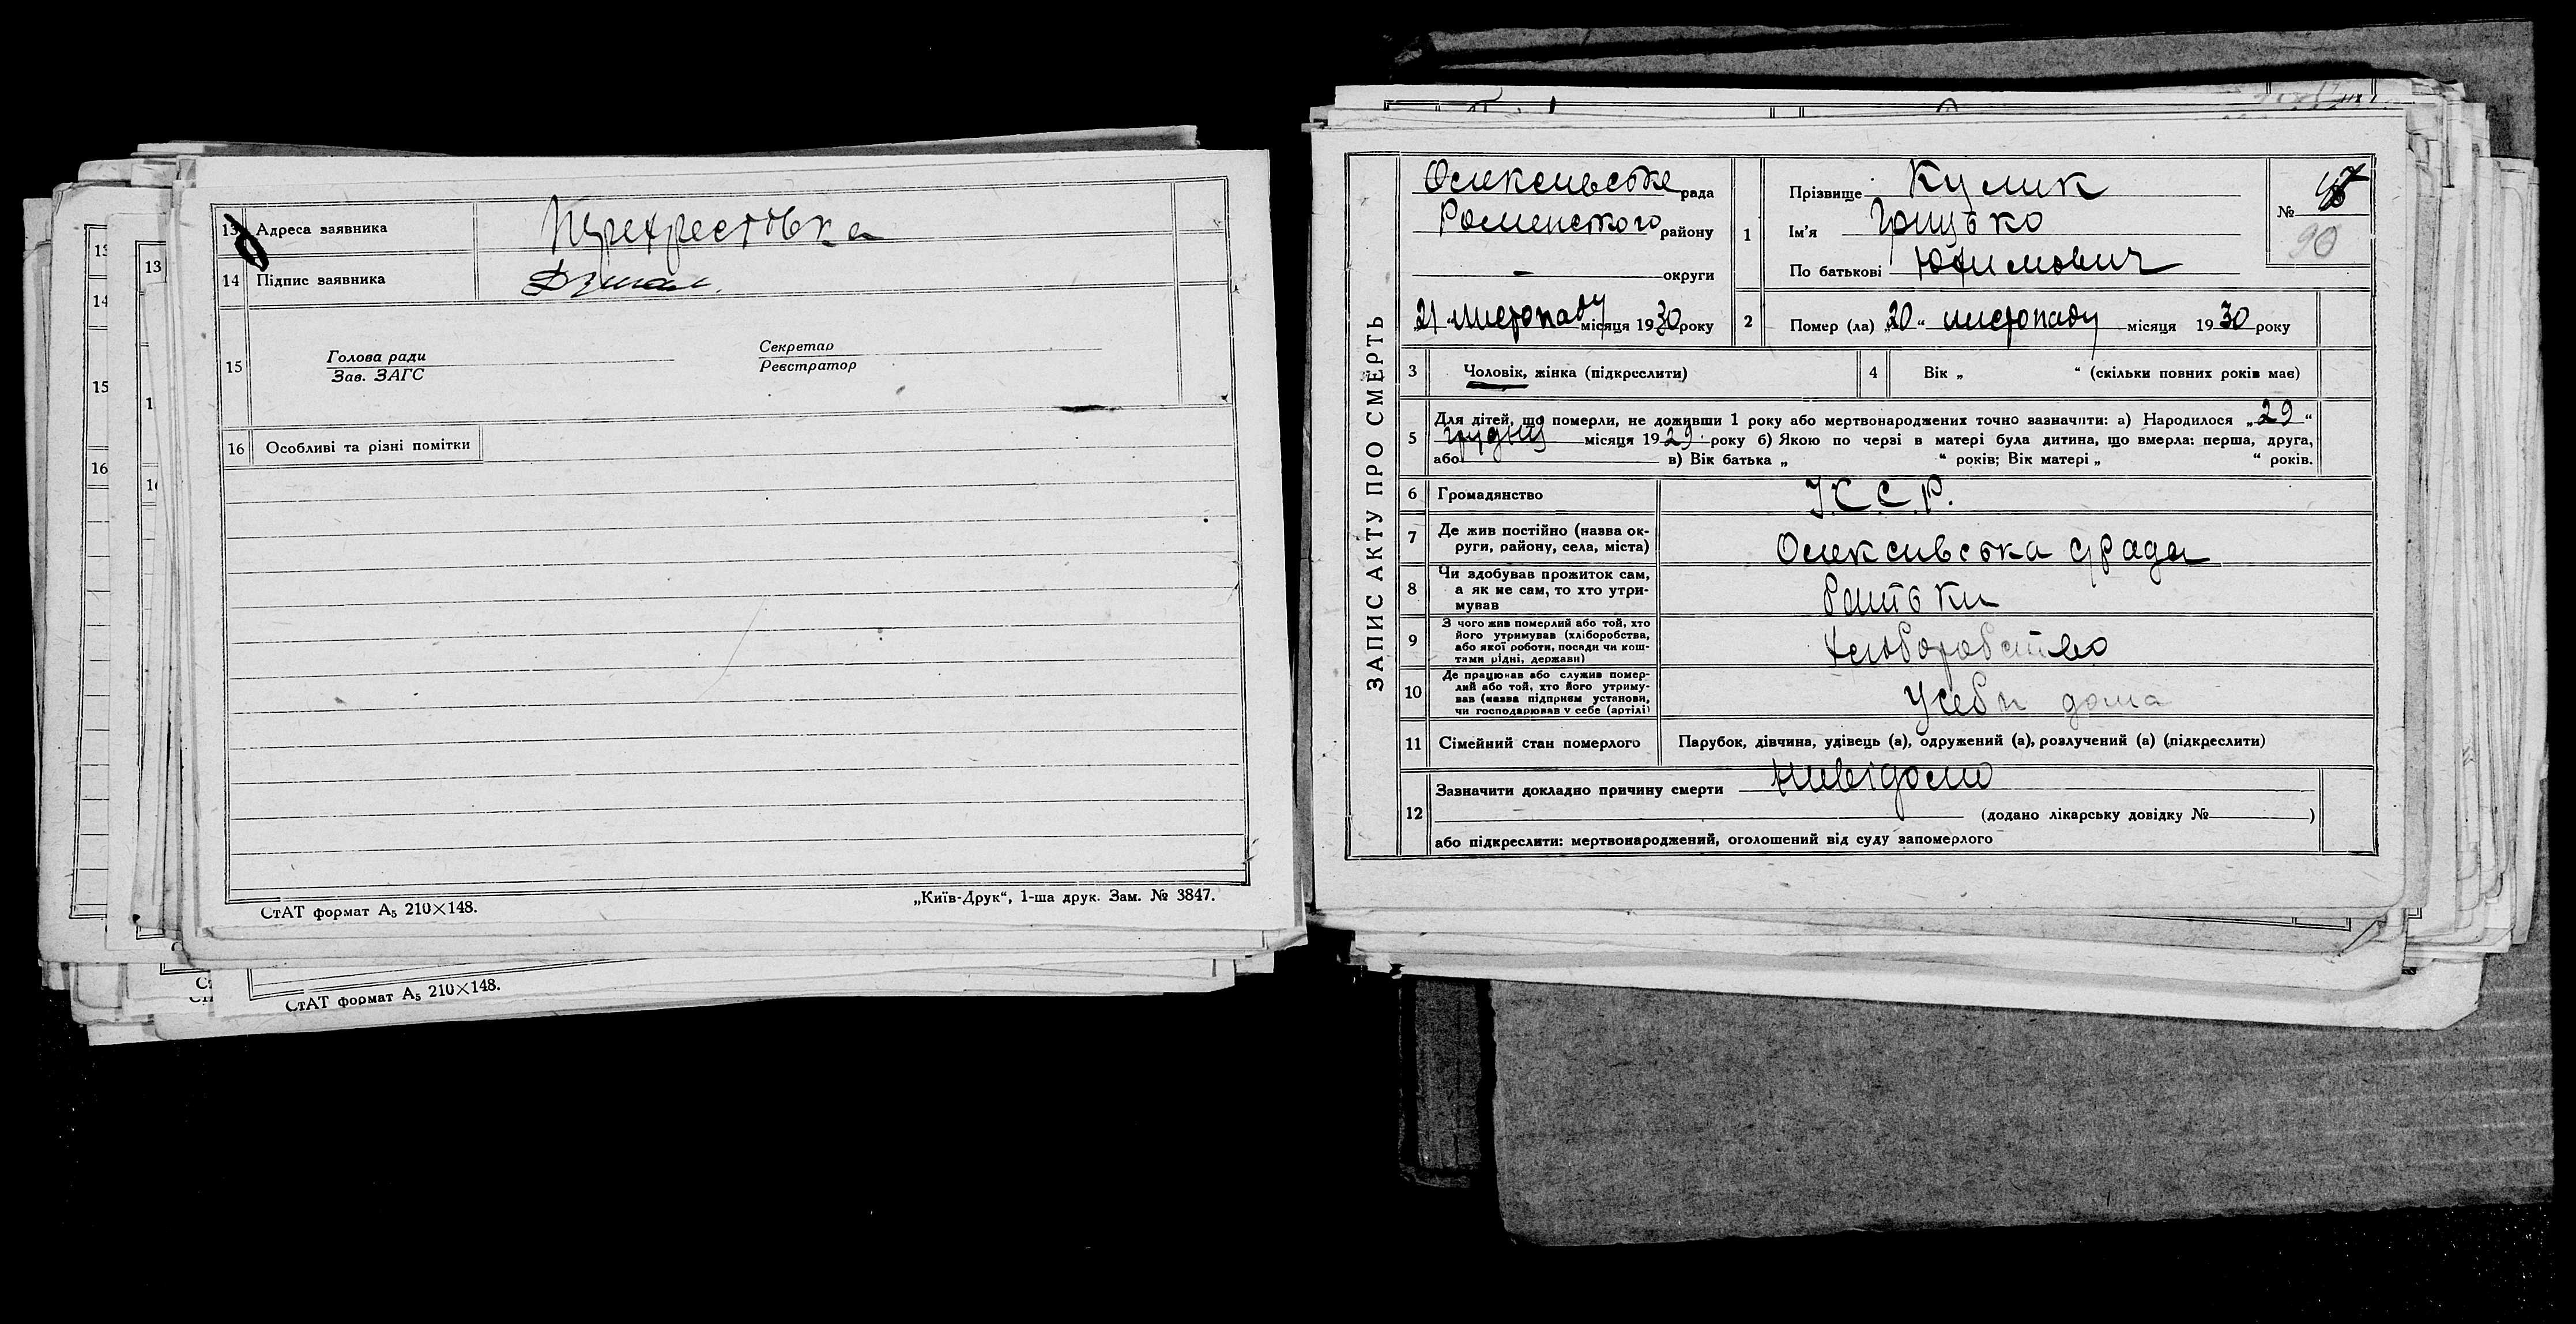 13 Адреса заявника Перехрестівка
14 Підпис заявника
15 Голова ради Секретар
Зав. ЗАГС Реєстратор
16 Особливі та різні помітки
СтАТ формат А₅ 210×148. „Київ-Друк“, 1-ша друк. Зам. № 3847.
СтАТ формат А₅ 210×148.
13
14
15
16
13
ЗАПИС АКТУ ПРО СМЕРТЬ
Олексиевське рада
Роменського району
— округи
21 „листопаду місяця 1930 року
1 Прізвище Кулик
Ім'я Грицько
По батькові Юхимович
№
90
2 Помер (ла) „20“ листопаду місяця 1930 року
3 Чоловік, жінка (підкреслити)
4 Вік „ “ (скільки повних років має)
5 Для дітей, що померли, не доживши 1 року або мертвонароджених точно зазначити: а) Народилося „29“
грудня місяця 1929 року б) Якою по черві в матері була дитина, що вмерла: перша, друга,
або в) Вік батька „ “ років; Вік матері „ “ років.
6 Громадянство У.С.С.Р.
7 Де жив постійно (назва ок-
руги, району, села, міста) Олексивська с/рада
8 Чи здобував прожиток сам,
а як не сам, то хто утри-
мував Батьки
9 З чого жив померлий або той, хто
його утримував (хліборобства,
або якої роботи, посади чи кош-
тами рідні, держави) Хліборобство
10 Де працював або служив помер-
лий або той, хто його утриму-
вав (назва підприєм установи,
чи господарював у себе (артілі) Усебя дома
11 Сімейний стан померлого Парубок, дівчина, удівець (а), одружений (а), розлучений (а) (підкреслити)
12 Зазначити докладно причину смерти Нивідомо
(додано лікарську довідку № )
або підкреслити: мертвонароджений, оголошений від суду запомерлого